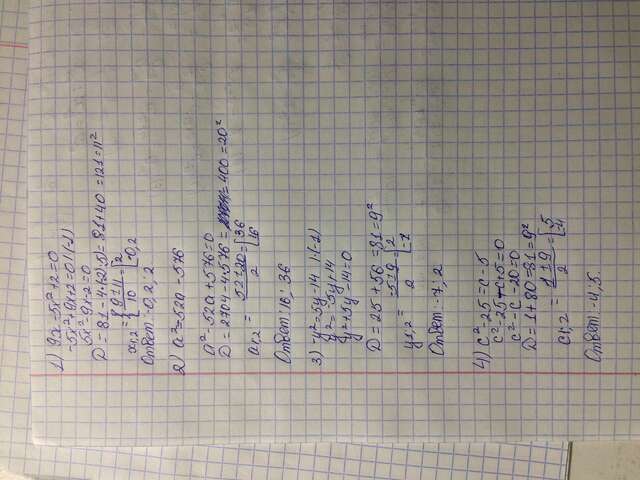 1) 9x-5x²+2=0
-5x²+9x+2=0 |·(-1)
5x²-9x-2=0
D = 81-4·(-2)·5) = 81+40 = 121 = 11²
x₁,₂ = 9±11/10 = [2 -0,2
Ответ: -0,2; 2
2) a²=52a-576
a²-52a+576=0
D = 2704-4·576 = 400 = 20²
a₁,₂ = 52±20/2 = [36 16
Ответ: 16; 36
3) -y²=5y-14 |·(-1)
y²=-5y+14
y²+5y-14=0
D = 25+56=81=9²
y₁,₂ = -5±9/2 = [2 -7
Ответ: -7; 2
4) c²-25=c-5
c²-25-c+5=0
c²-c-20=0
D = 1+80=81=9²
c₁,₂ = 1±9/2 = [5 -4
Ответ: -4; 5.